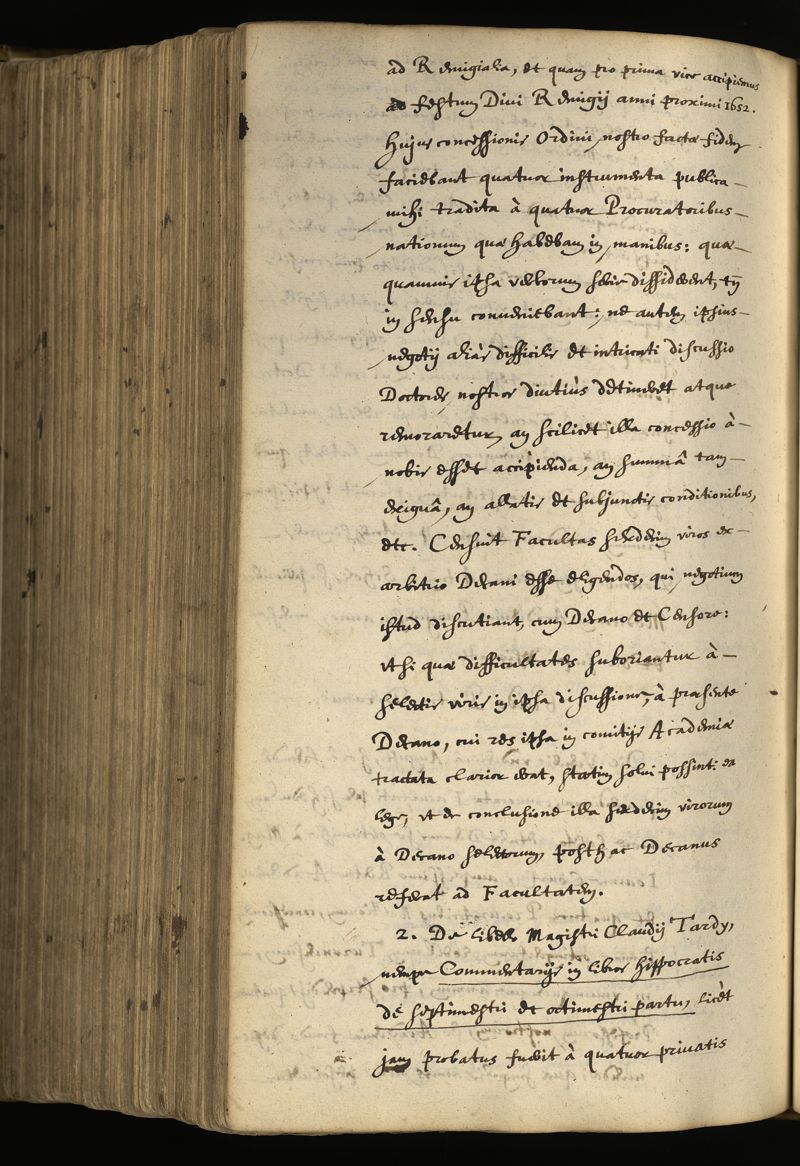 ad Remigialia, et quam pro prima vice accipiemus
ad festum Divi Remigij anni proximi 1652.
Hujus concessionis Ordini nostro factæ fidem
faciebant quatuor instrumenta publica
mihi tradita à quatuor Procuratoribus
nationum quæ habebam in manibus: quæ
quamvis ipsa verborum serie dissiderent, tñ
in sensu conveniebant: ne autem ipsius
negotij aliàs difficilis et intricati discussio
Doctores nostros diutiùs detineret atque
remoraretur, an scilicet illa concessio à
nobis esset accipienda, an summâ tam
exiguâ, an allatis et subjunctis conditionibus,
etc. Censuit Facultas sexdecim viros ex
arbitrio Decani esse eligendos, qui negotium
istud discutiant, cum Decano et Censore:
vt si quæ difficultates suboriantur à
selectis viris in ipsa discussione, à præsente
Decano, cui res ipsa in comitijs Academiæ
tractata clarior erat, statim solvi possint: ea
lege, vt de conclusione illa sexdecim virorum
à Decano selectorum, posthac Decanus
referat ad Facultatem.
2. De libello Magistri Claudij Tardy,
nempe Commentarijs in libros Hippocratis
de septimestri et octimestri partu, licèt
jam probatus fuerit à quatuor privatis